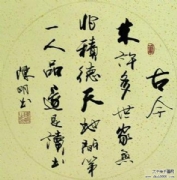 古今
来许多世家无
非积德天地间第
一人品还是读书
陈明书